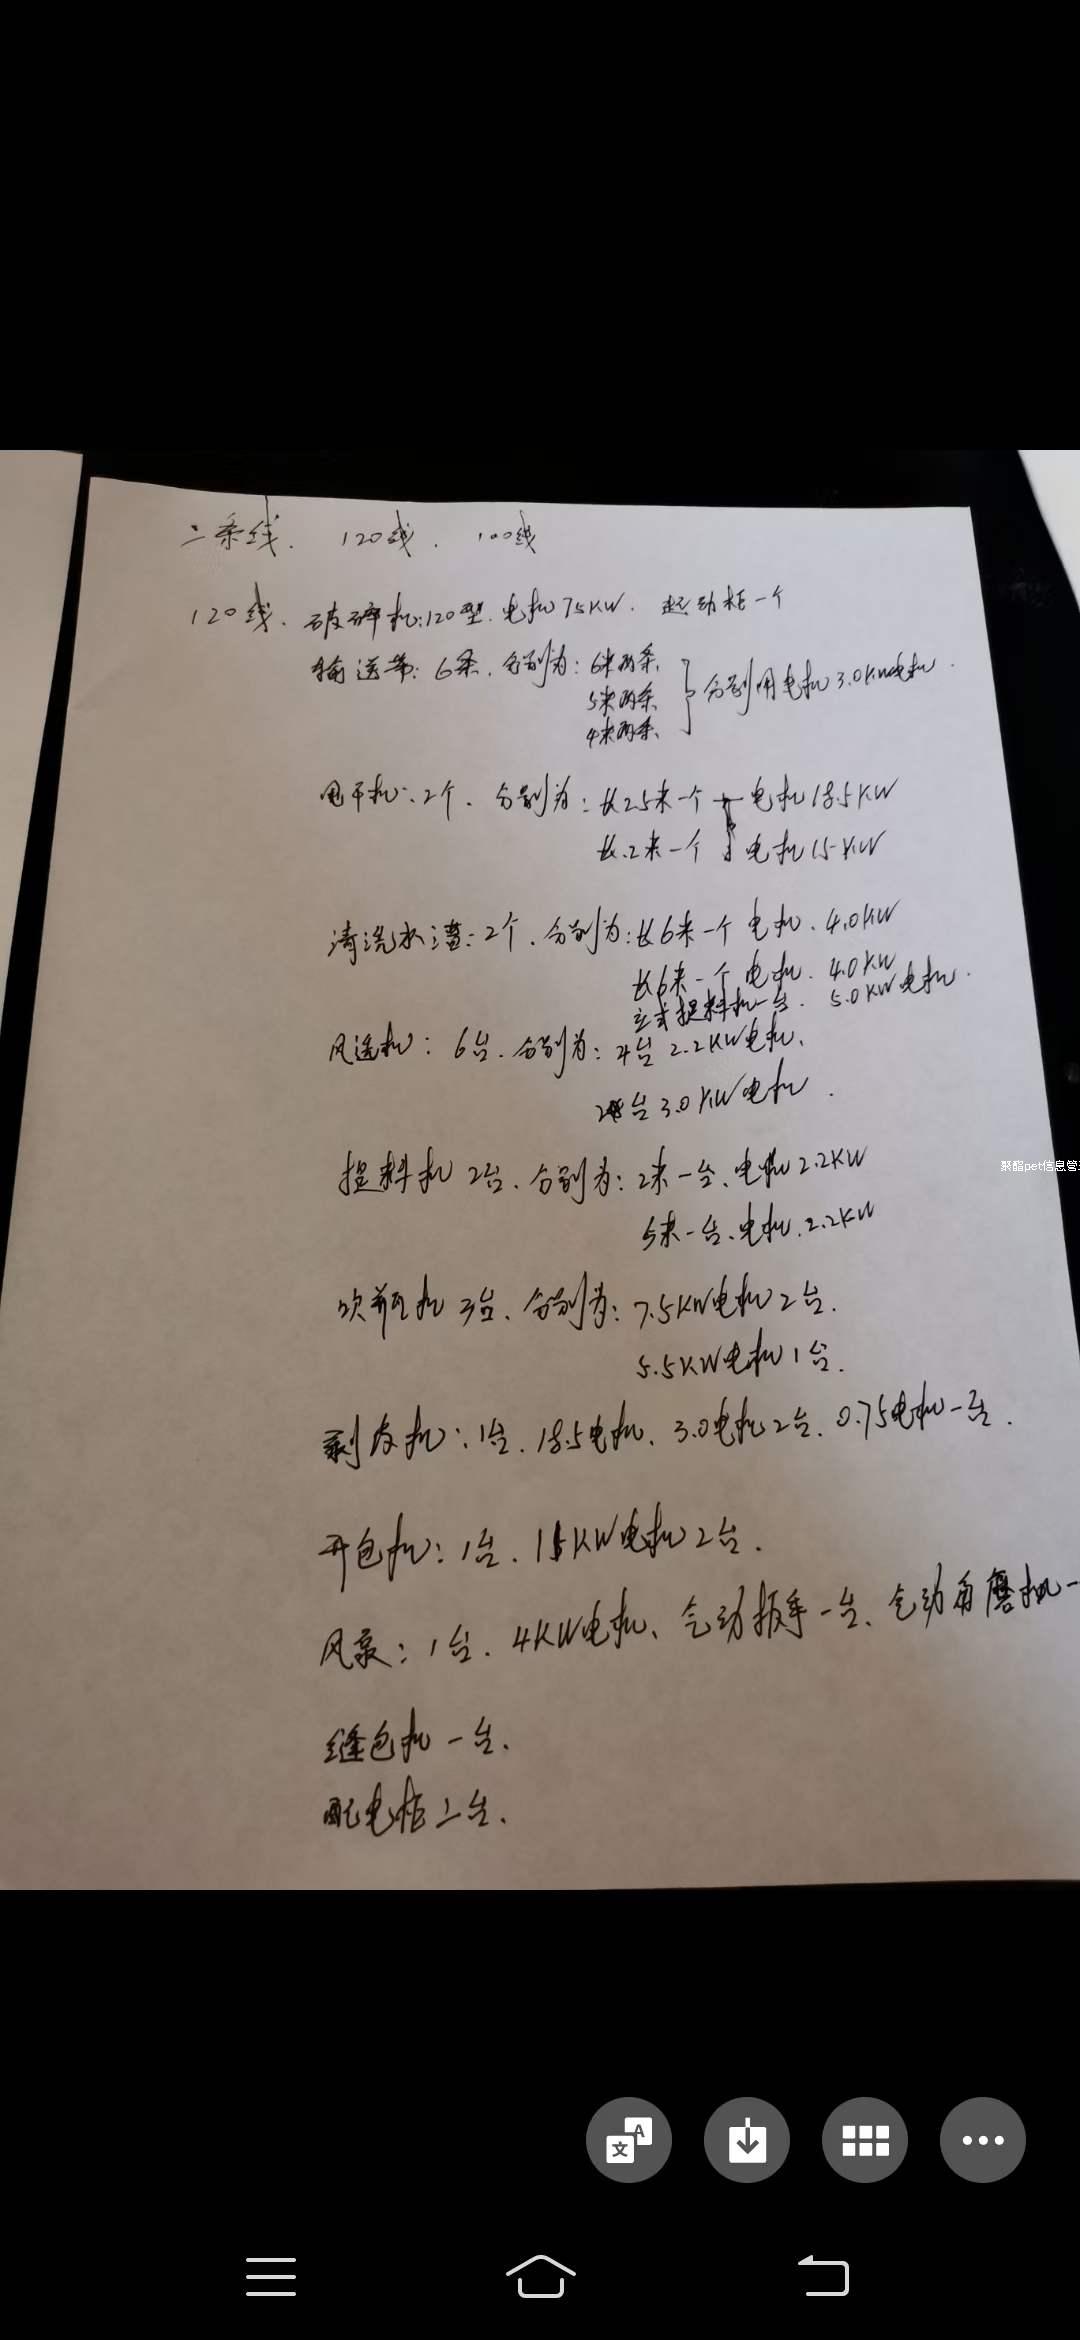 二条线. 120线. 100线
120线. 破碎机:120型. 电机75KW. 起动柜一个
输送带: 6条. 分别为: 6米两条,
5米两条
4米两条,
分别用电机3.0KW电机.
甩干机: 2个. 分别为: 长2.5米一个 电机18.5KW
长.2米一个 电机15KW
清洗水漕: 2个. 分别为: 长6米一个 电机. 4.0KW
长6米一个 电机. 4.0KW
立式提料机一台. 5.0KW电机.
风选机: 6台. 分别为: 4台 2.2KW电机,
2台3.0KW电机.
提料机 2台. 分别为: 2米一台、电机2.2KW
5米一台、电机.2.2KW
吹瓶机 3台. 分别为: 7.5KW电机2台.
5.5KW电机1台.
剥皮机: 1台. 18.5电机、3.0电机2台. 0.75电机一台.
开包机: 1台. 15KW电机2台.
风泵: 1台. 4KW电机、气动扳手一台、气动角磨机一
缝包机一台.
配电柜二台.
聚酯pet信息管